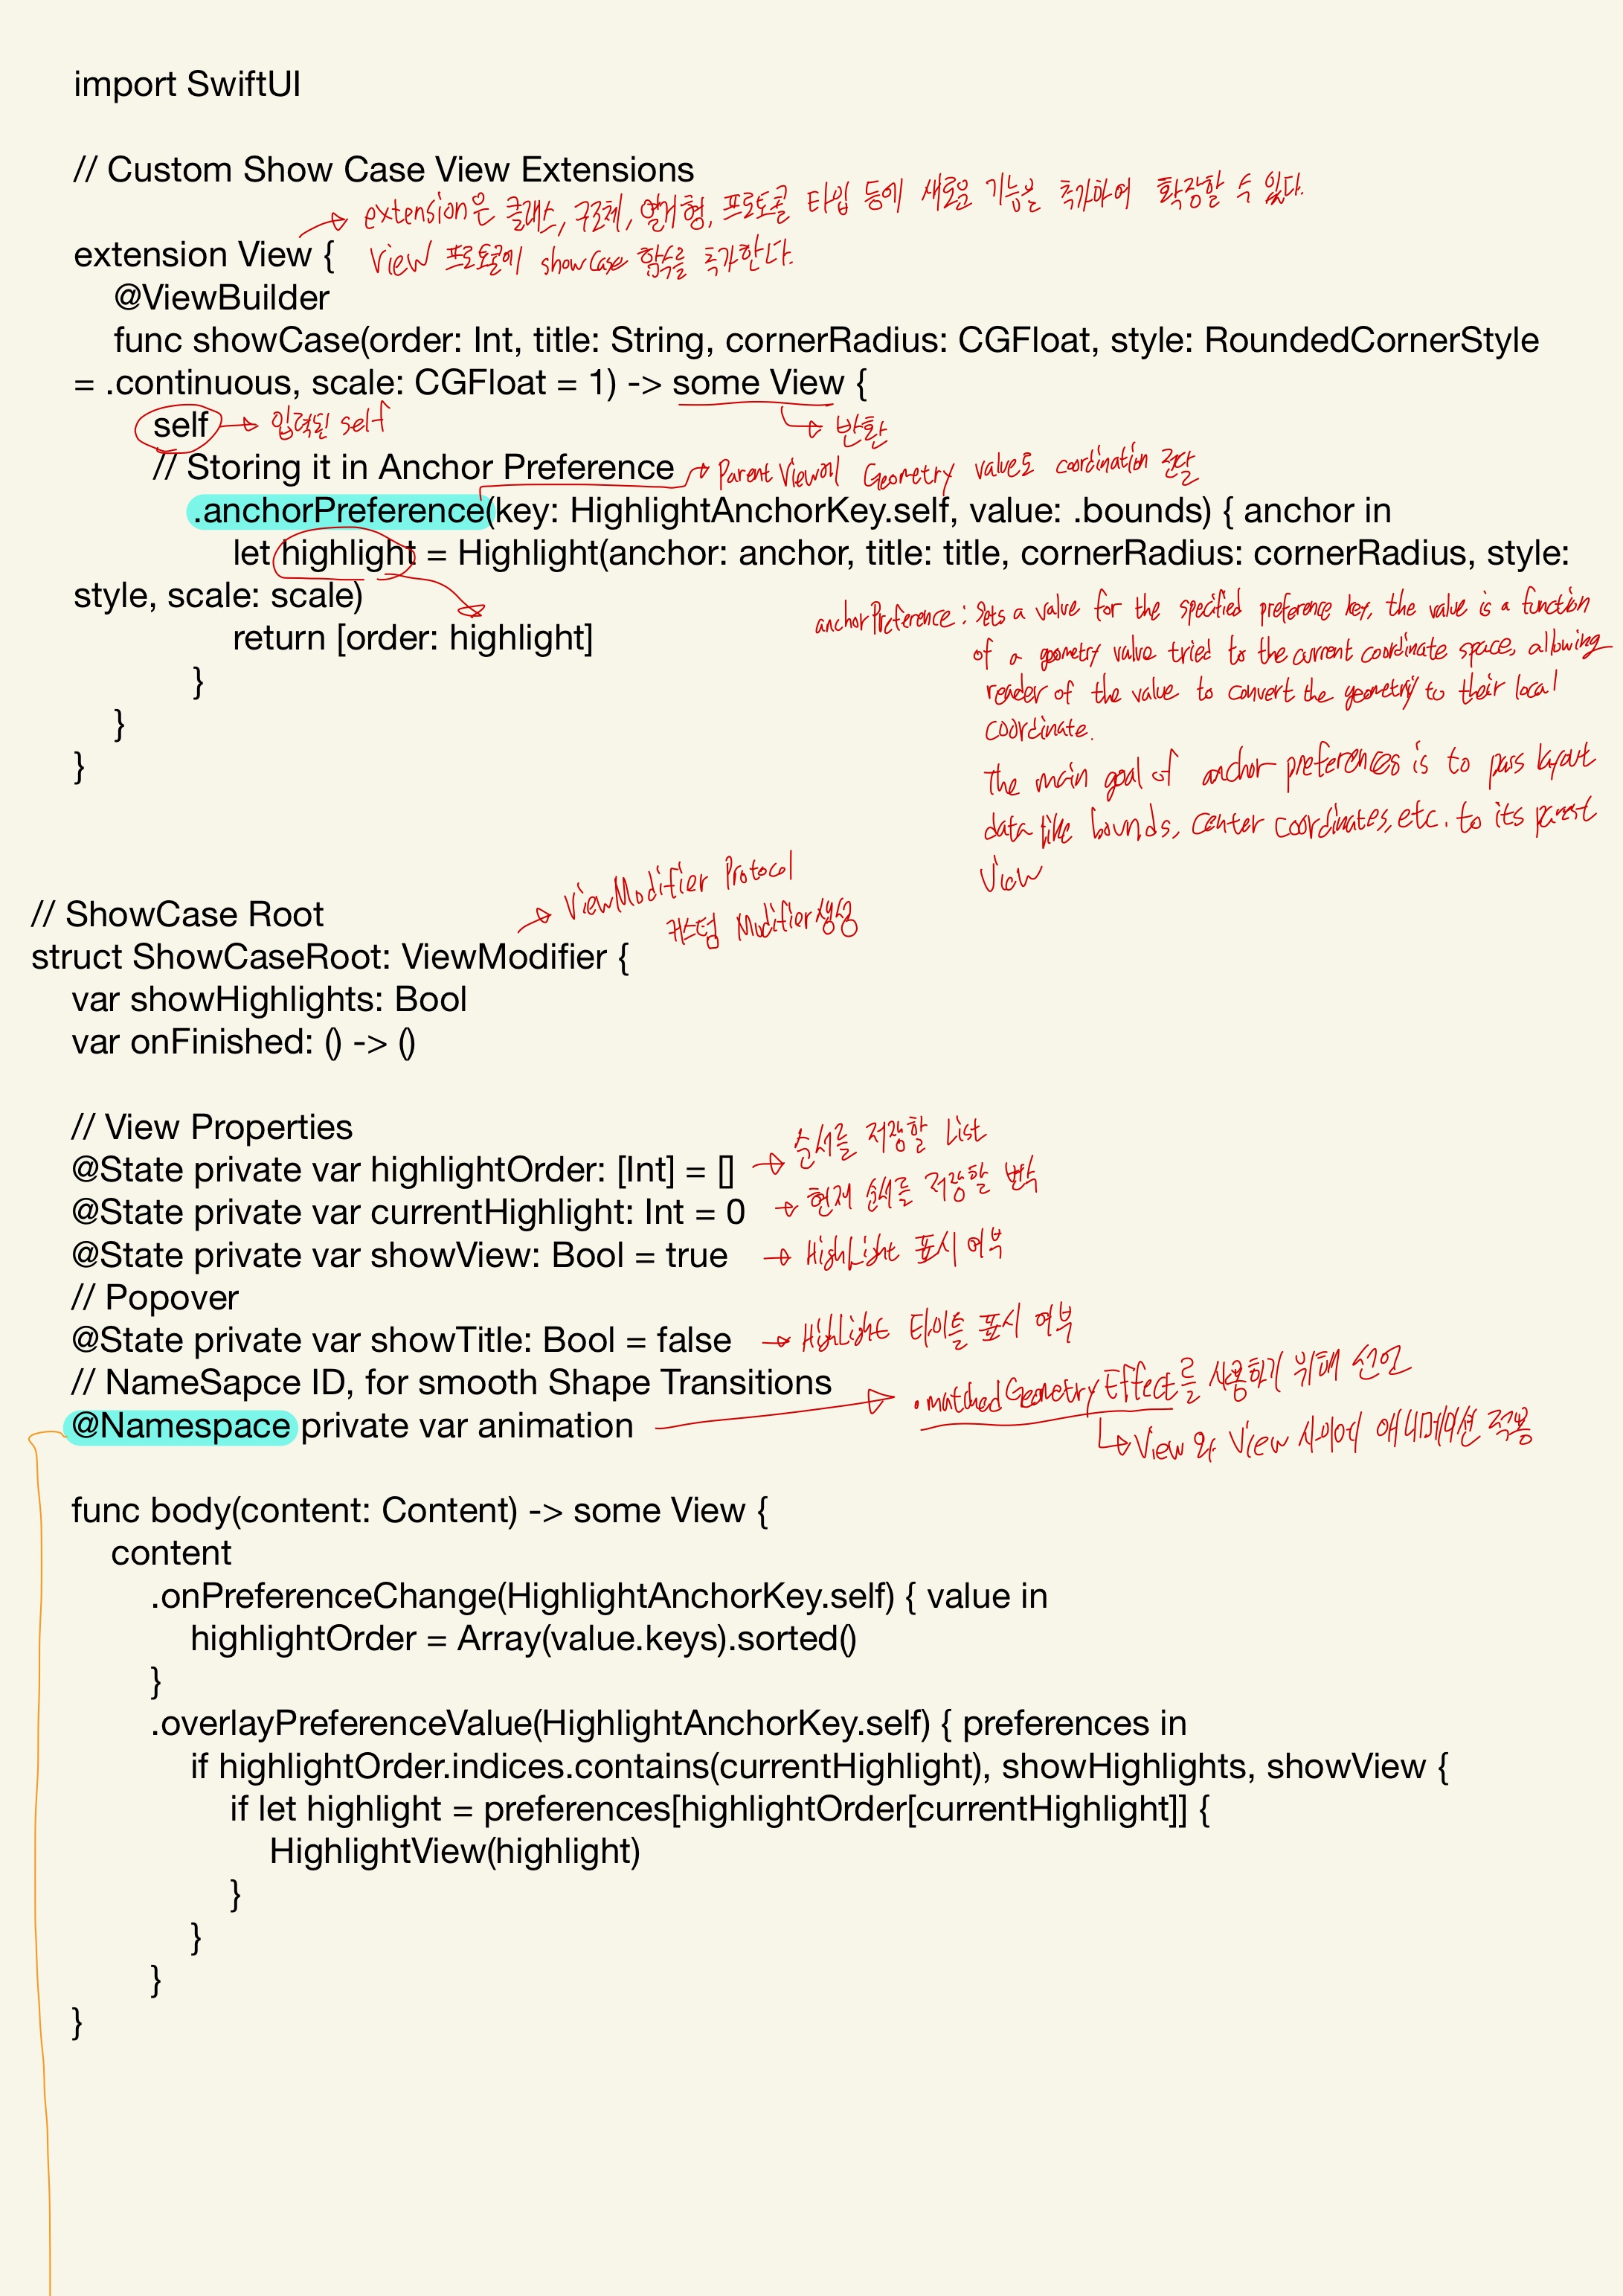 import SwiftUI
// Custom Show Case View Extensions
extension은 클래스, 구조체, 열거형, 프로토콜 타입 등에 새로운 기능을 추가하여 확장할 수 있다.
extension View {
View 프로토콜에 showCase 함수를 추가한다.
@ViewBuilder
func showCase(order: Int, title: String, cornerRadius: CGFloat, style: RoundedCornerStyle
= .continuous, scale: CGFloat = 1) -> some View {
self
입력된 self
반환
// Storing it in Anchor Preference
Parent View에 Geometry value로 coordination 전달
.anchorPreference(key: HighlightAnchorKey.self, value: .bounds) { anchor in
let highlight = Highlight(anchor: anchor, title: title, cornerRadius: cornerRadius, style:
style, scale: scale)
return [order: highlight]
}
}
}
anchorPreference : Sets a value for the specified preference key, the value is a function
of a geometry value tried to the current coordinate space, allowing
reader of the value to convert the geometry to their local
coordinate.
The main goal of anchor preferences is to pass layout
data like bounds, center coordinates, etc. to its parent
View
ViewModifier Protocol
커스텀 Modifier 생성
// ShowCase Root
struct ShowCaseRoot: ViewModifier {
var showHighlights: Bool
var onFinished: () -> ()
// View Properties
@State private var highlightOrder: [Int] = []
순서를 저장할 List
@State private var currentHighlight: Int = 0
현재 순서를 저장할 변수
@State private var showView: Bool = true
HighLight 표시 여부
// Popover
@State private var showTitle: Bool = false
HighLight 타이틀 표시 여부
// NameSapce ID, for smooth Shape Transitions
@Namespace private var animation
.matchedGeometryEffect를 사용하기 위해 선언
View와 View 사이에 애니메이션 적용
func body(content: Content) -> some View {
content
.onPreferenceChange(HighlightAnchorKey.self) { value in
highlightOrder = Array(value.keys).sorted()
}
.overlayPreferenceValue(HighlightAnchorKey.self) { preferences in
if highlightOrder.indices.contains(currentHighlight), showHighlights, showView {
if let highlight = preferences[highlightOrder[currentHighlight]] {
HighlightView(highlight)
}
}
}
}